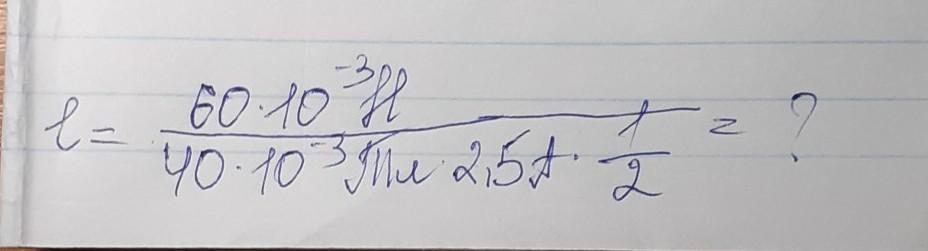 l = 60·10⁻³Н / 40·10⁻³Тл·2,5А·1/2 = ?